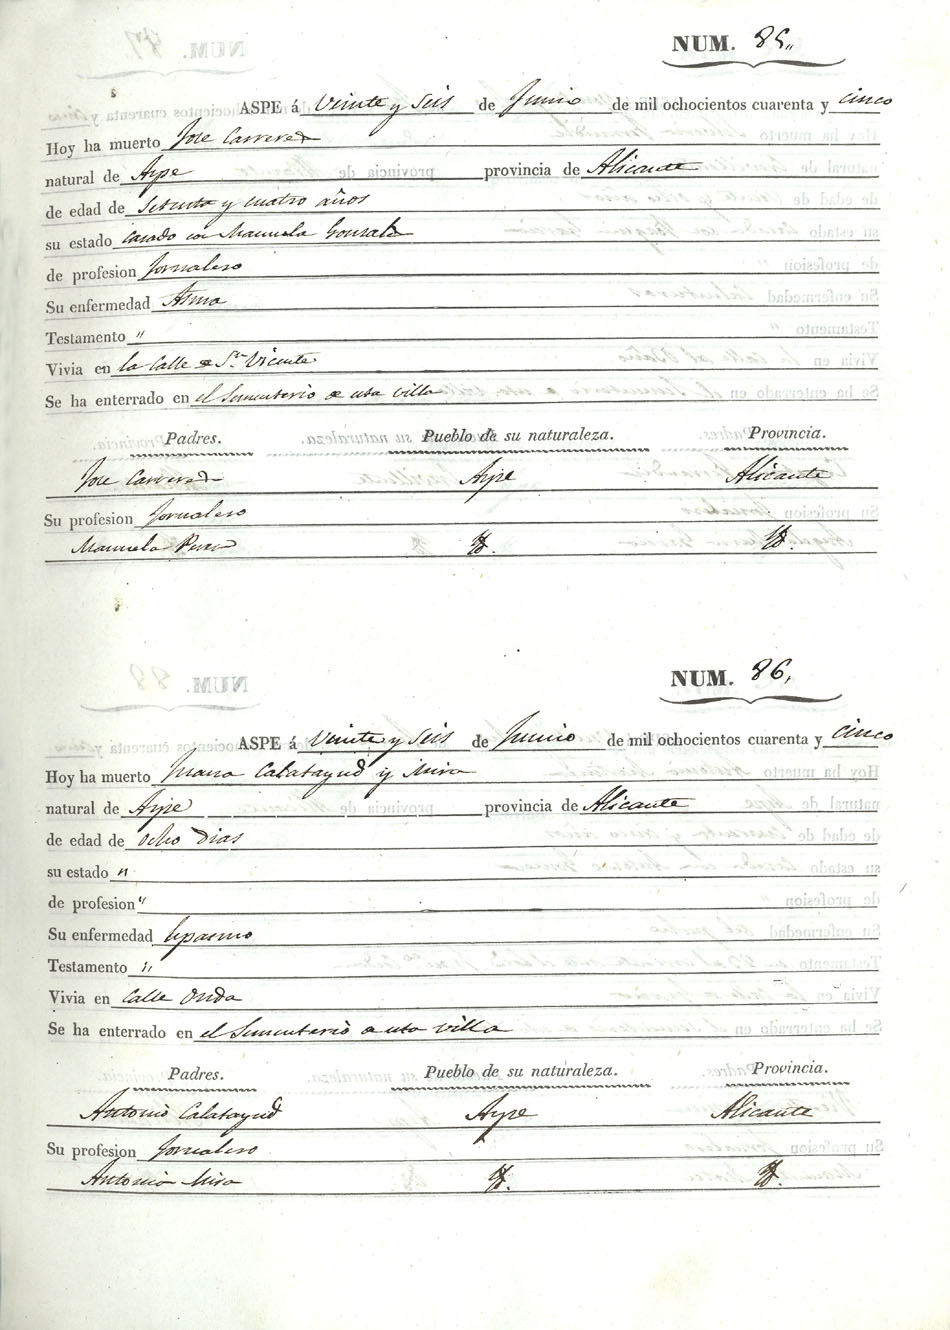 NUM. 85.
ASPE á Veinte y Seis de Junio de mil ochocientos cuarenta y cinco
Hoy ha muerto Jose Carreres
natural de Aspe provincia de Alicante
de edad de Setenta y cuatro años
su estado Casado con Manuela Gonzalez
de profesion Jornalero
Su enfermedad Asma
Testamento "
Vivia en la Calle de Sn. Vicente
Se ha enterrado en el Sementerio de esta villa
Padres. Pueblo de su naturaleza. Provincia.
Jose Carreres Aspe Alicante
Su profesion Jornalero
Manuela Perez Yd. Yd.
NUM. 86.
ASPE á Veinte y Seis de Junio de mil ochocientos cuarenta y cinco
Hoy ha muerto Maria Calatayud y Mira
natural de Aspe provincia de Alicante
de edad de ocho dias
su estado "
de profesion "
Su enfermedad Espasmo
Testamento "
Vivia en Calle Onda
Se ha enterrado en el Sementerio de esta villa
Padres. Pueblo de su naturaleza. Provincia.
Antonio Calatayud Aspe Alicante
Su profesion Jornalero
Antonia Mira Yd. Yd.